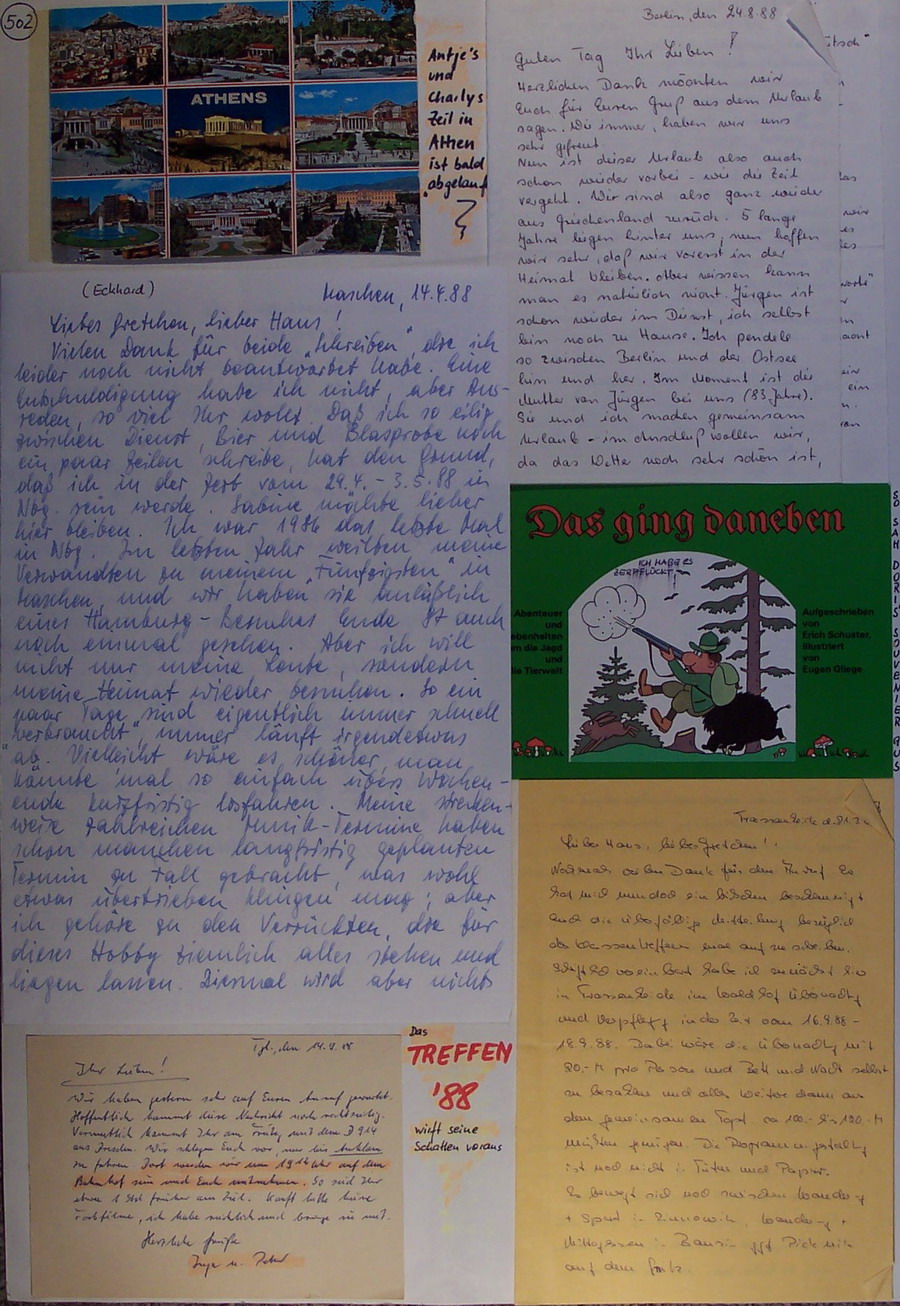 502
ATHENS
Antje's
und
Charlys
Zeit in
Athen
ist bald
abgelauf
Berlin, den 24.8.88
Guten Tag Ihr Lieben!
Herzlichen Dank möchten wir
Euch für Euren Gruß aus dem Urlaub
sagen. Wie immer, haben wir uns
sehr gefreut.
Nun ist dieser Urlaub also auch
schon wieder vorbei - wie die Zeit
vergeht. Wir sind also ganz wieder
aus Griechenland zurück. 5 lange
Jahre liegen hinter uns, nun hoffen
wir sehr, daß wir vorerst in der
Heimat bleiben. Aber wissen kann
man es natürlich nicht. Jürgen ist
schon wieder im Dienst, ich selbst
bin noch zu Hause. Ich pendele
so zwischen Berlin und der Ostsee
hin und her. Im Moment ist die
Mutter von Jürgen bei uns (83 Jahre).
Sie und ich machen gemeinsam
Urlaub - im Anschluß wollen wir,
da das Wetter noch sehr schön ist,
(Eckhard)
Maschen, 14.4.88
Liebes Gretchen, lieber Hans!
Vielen Dank für beide "Schreiben", die ich
leider noch nicht beantwortet habe. Eine
Entschuldigung habe ich nicht, aber Aus-
reden, so viel Ihr wollt. Daß ich so eilig
zwischen Dienst, Bier und Blasprobe noch
ein paar Zeilen schreibe, hat den Grund,
daß ich in der Zeit vom 29.4. - 3.5.88 in
Nbg. sein werde. Sabine möchte lieber
hier bleiben. Ich war 1986 das letzte Mal
in Nbg. Im letzten Jahr weilten meine
Verwandten zu meinem "Fünfzigsten" in
Maschen, und wir haben sie anläßlich
eines Hamburg-Besuches Ende 87 auch
noch einmal gesehen. Aber ich will
nicht nur meine Leute, sondern
meine Heimat wieder besuchen. So ein
paar Tage sind eigentlich immer schnell
"verbraucht", immer läuft irgendetwas
ab. Vielleicht wäre es schöner, man
könnte 'mal so einfach übers Wochen-
ende kurzfristig losfahren. Meine strecken-
weise zahlreichen Musik-Termine haben
schon manchen langfristig geplanten
Termin zu Fall gebracht, was wohl
etwas übertrieben klingen mag; aber
ich gehöre zu den Verrückten, die für
dieses Hobby ziemlich alles stehen und
liegen lassen. Diesmal wird aber nichts
Das ging daneben
ICH HABE ES
ZERPFLÜCKT!
Abenteuer
und
ebenheiten
m die Jagd
und
ie Tierwelt
Aufgeschrieben
von
Erich Schuster,
illustriert
von
Eugen Gliege
SO SAH DORIS' SOUVENIER AUS
Lieber Hans, liebes Gretchen!
Nochmals vielen Dank für den Anruf. Es
hat mich nun doch ein bißchen beschleunigt
und die überfällige Mitteilung bezüglich
des Klassentreffens mal aufzuschreiben.
in Trassenheide im Waldhof Übernachtg
und Verpflegg in der Zeit vom 16.9.88 -
18.9.88. Dabei wäre die Übernachtg mit
20.-M pro Person und Bett und Nacht selbst
zu bezahlen und alles weitere dann aus
dem gemeinsamen Topf. ca 100.- bis 120.-M
müßten genügen. Die Programmgestaltg
ist noch nicht in Tüten und Papier.
Es bewegt sich noch zwischen Wanderg
+ Sport in Zinnowitz, Wanderg +
Mittagessen in Bansin ggf Picknick
auf dem
Das
TREFFEN
'88
wirft seine
Schatten voraus
Ihr Lieben!
Wir haben gestern sehr auf Euren Anruf gewartet.
Hoffentlich kommt diese Nachricht noch rechtzeitig.
Vermutlich kommt Ihr am Freitag mit dem D 914
aus Dresden. Wir schlagen Euch vor, nur bis Anklam
zu fahren. Dort werden wir um Uhr auf dem
Bahnhof sein und Euch mitnehmen. So seid Ihr
etwa 1 Std früher am Ziel. Kauft bitte keine
Farbfilme, ich habe reichlich und bringe sie mit.
Herzliche Grüße
Inge u. Peter